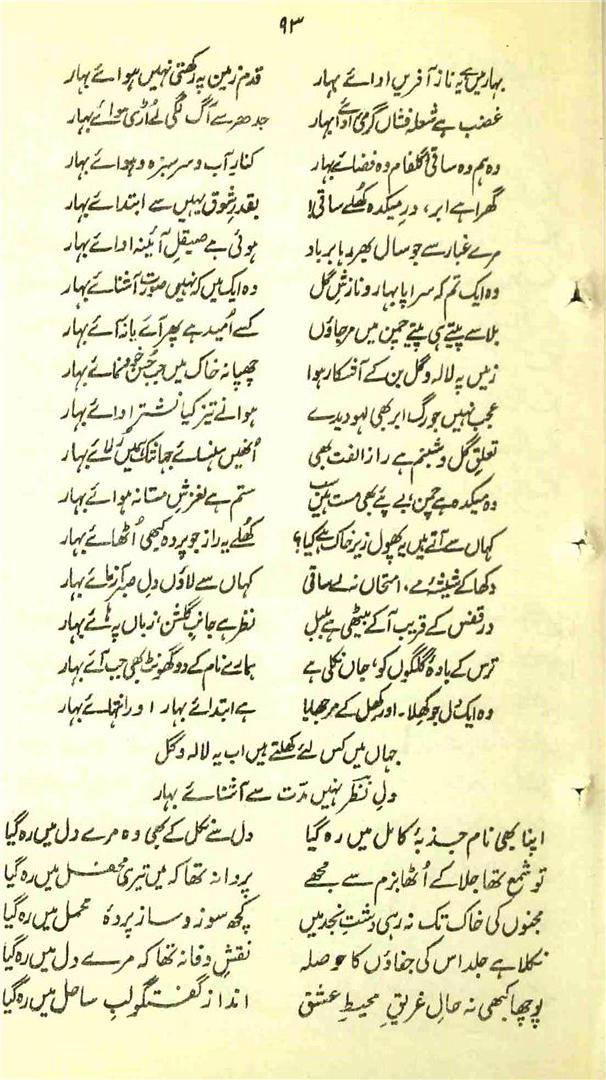 ۹۳
بہار میں ہے یہ ناز آفریں ادائے بہار قدم زمین پہ رکھتی نہیں ہوائے بہار
غضب ہے شعلہ فشاں گرمیِ ادائے بہار جدھر سے آگ لگی لے اُڑی ہوائے بہار
وہ ہم وہ ساقیِ گلفام وہ فضائے بہار کنارِ آب و سرِ سبزہ و ہوائے بہار
گھرا ہے ابر، درِ میکدہ کُھلے ساقی! بقدرِ شوق یہیں سے ابتدائے بہار
مرے غبار سے جو سال بھر رہا برباد ہوئی ہے صیقلِ آئینہ ادائے بہار
وہ ایک تم کہ سراپا بہار و نازشِ گل وہ ایک میں کہ نہیں صورت آشنائے بہار
بلا سے پیتے ہی پیتے چمن میں مر جاؤں کسے اُمید ہے پھر آئے یا نہ آئے بہار
زمیں پہ لالہ و گل بن کے آشکار ہوا چھپا نہ خاک میں جب حُسنِ خود نمائے بہار
عجب نہیں جو رگِ ابر بھی لہو دیدے ہوا نے تیز کیا نشترِ ادائے بہار
تعلقِ گل و شبنم ہے رازِ الفت بھی اُنھیں ہنسائے جہاں تک ہمیں رُلائے بہار
وہ میکدہ ہے چمن بے پئے بھی مست ہیں سب ستم ہے لغزشِ مستانہ ہوائے بہار
کہاں سے آتے ہیں یہ پھول زیرِ خاک ہے کیا؟ کُھلے یہ راز جو پردہ کبھی اُٹھائے بہار
دکھا کے شیشۂ مے، امتحاں نہ لے ساقی کہاں سے لاؤں دلِ صبر آزمائے بہار
درِ قفس کے قریب آ کے بیٹھی ہے بلبل نظر ہے جانبِ گلشن، زباں پہ ہائے بہار
ترس کے بادۂ گلگوں کو، جاں نکلی ہے ہمارے نام کے دو گھونٹ بھی جب آئے بہار
وہ ایک دل جو کِھلا۔ اور کِھل کے مرجھایا ہے ابتدائے بہار اور انتہائے بہار
جہاں میں کس لئے کھلتے ہیں اب یہ لالہ و گل
دلِ نظر نہیں مدّت سے آشنائے بہار
اپنا بھی نام جذبۂ کامل میں رہ گیا دل سے نکل کے بھی وہ مرے دل میں رہ گیا
تو شمع تھا جلا کے اُٹھا بزم سے مجھے پروانہ تھا کہ میں تیری محفل میں رہ گیا
مجنوں کی خاک تک نہ رہی دشتِ نجد میں کچھ سوز و ساز پردۂ محمل میں رہ گیا
نکلا ہے جلد اس کی جفاؤں کا حوصلہ نقشِ وفا نہ تھا کہ مرے دل میں رہ گیا
پوچھا کبھی نہ حالِ غریقِ محیطِ عشق اندازِ گفتگو لبِ ساحل میں رہ گیا